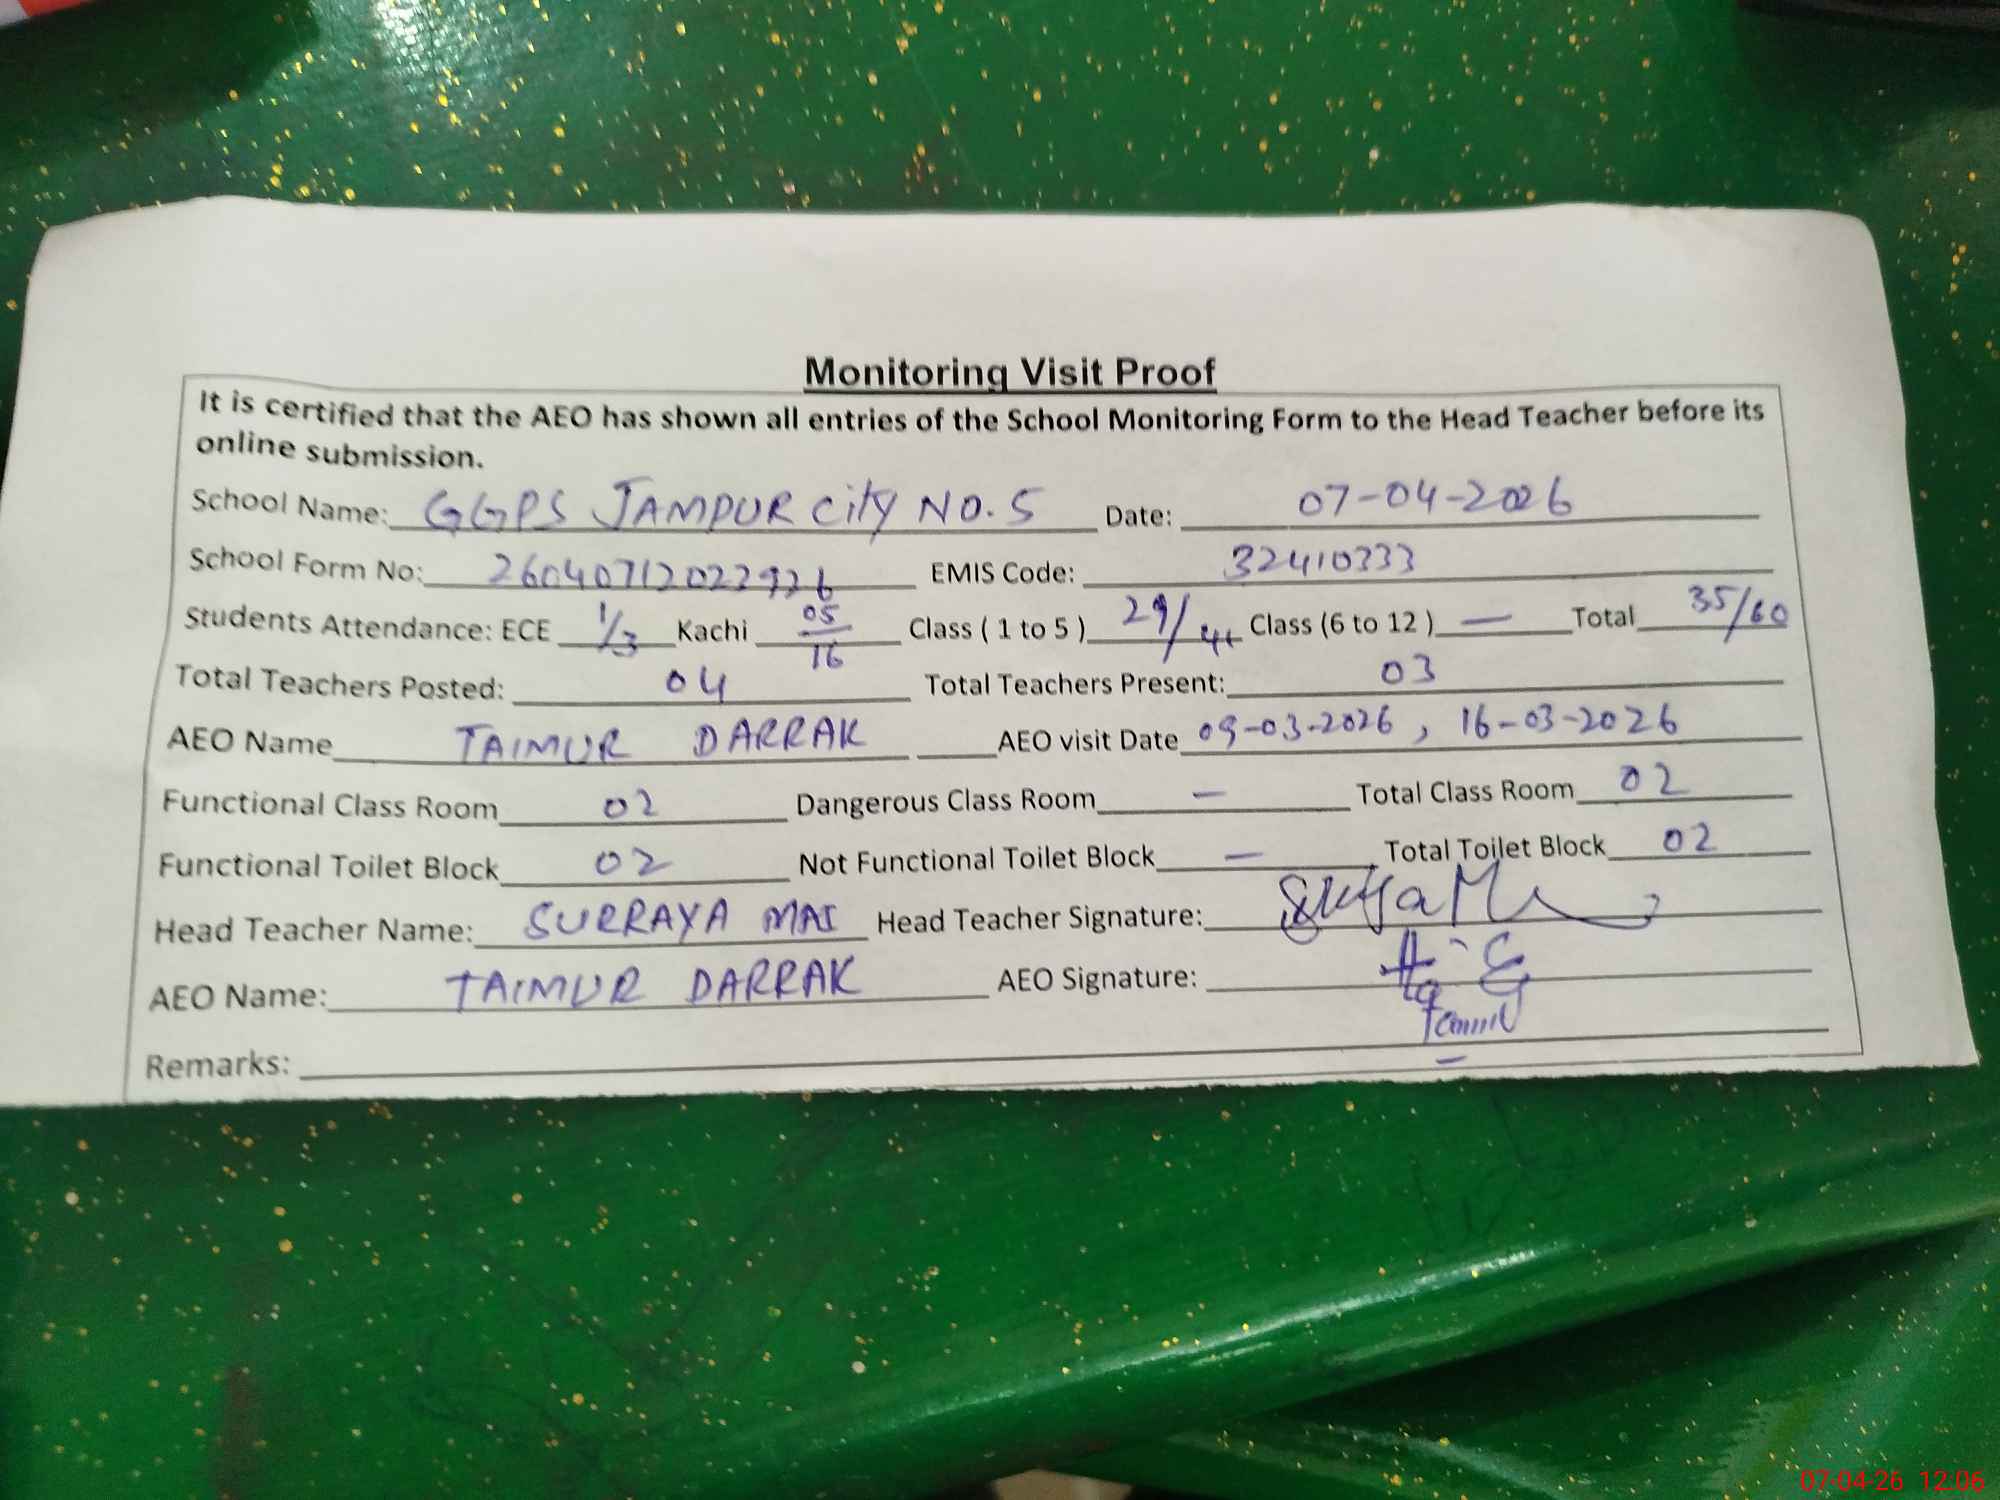 Monitoring Visit Proof
It is certified that the AEO has shown all entries of the School Monitoring Form to the Head Teacher before its
online submission.
School Name: GGPS JAMPUR City NO. 5 Date: 07-04-2026
School Form No: EMIS Code: 32410333
Students Attendance: ECE 1/3 Kachi 05/16 Class ( 1 to 5 ) 29/41 Class (6 to 12 ) — Total 35/60
Total Teachers Posted: 04 Total Teachers Present: 03
AEO Name TAIMUR DARRAK AEO visit Date 09-03-2026 , 16-03-2026
Functional Class Room 02 Dangerous Class Room — Total Class Room 02
Functional Toilet Block 02 Not Functional Toilet Block — Total Toilet Block 02
Head Teacher Name: SURRAYA MAI Head Teacher Signature:
AEO Name: TAIMUR DARRAK AEO Signature:
Remarks:
07-04-26 12:06